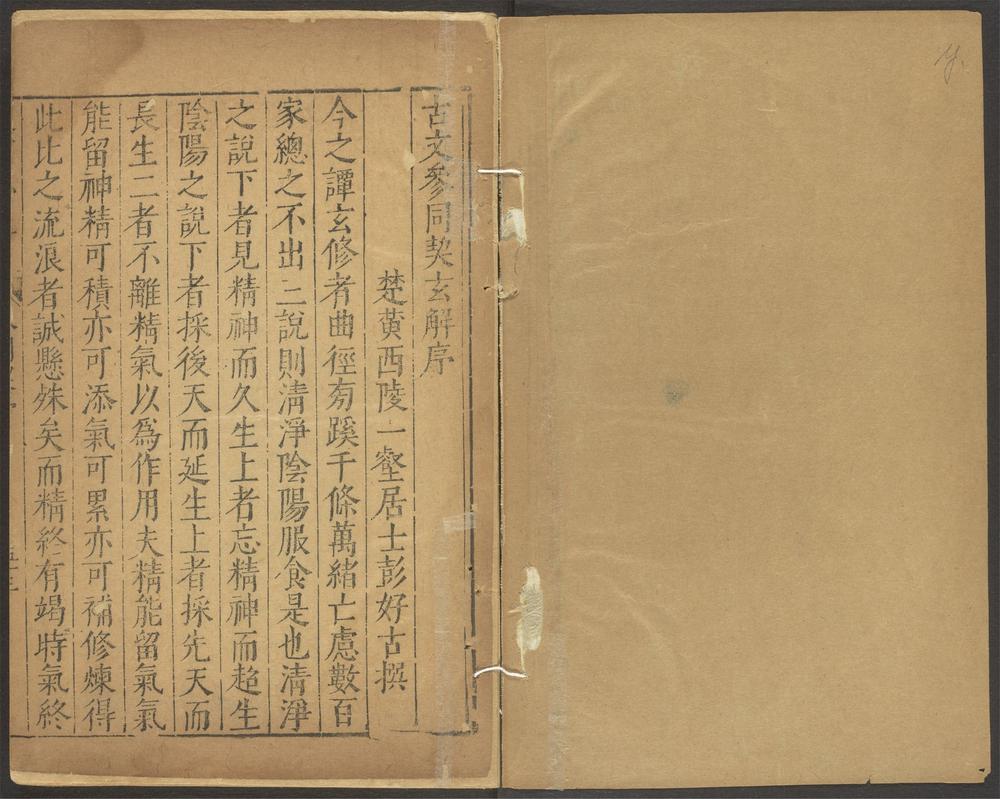 古文參同契玄解序
楚黃西陵一壑居士彭好古撰
今之譚玄修者曲徑旁蹊千條萬緒亡慮數百
家總之不出二說則清淨陰陽服食是也清淨
之說下者見精神而久生上者忘精神而超生
陰陽之說下者採後天而延生上者採先天而
長生二者不離精氣以爲作用夫精能留氣氣
能留神精可積亦可添氣可累亦可補修煉得
此比之流浪者誠懸殊矣而精終有竭時氣終